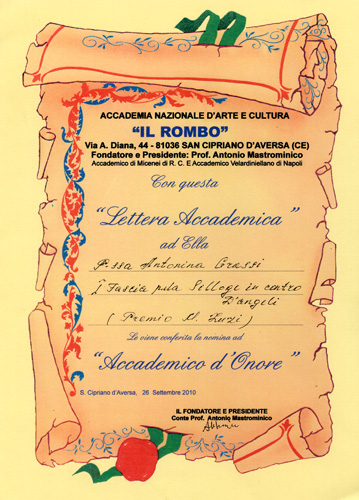 ACCADEMIA NAZIONALE D'ARTE E CULTURA
"IL ROMBO"
Via A. Diana, 44 - 81036 SAN CIPRIANO D'AVERSA (CE)
Fondatore e Presidente: Prof. Antonio Mastrominico
Accademico di Micenei di R. C. E Accademico Velardiniellano di Napoli
Con questa
"Lettera Accademica"
ad Ella
P.ssa Antonina Grassi
I Fascia pela Silloge in contro
D'angeli
(Premio
Le viene conferita la nomina ad
"Accademico d'Onore"
S. Cipriano d'Aversa, 26 Settembre 2010
IL FONDATORE E PRESIDENTE
Conte Prof. Antonio Mastrominico